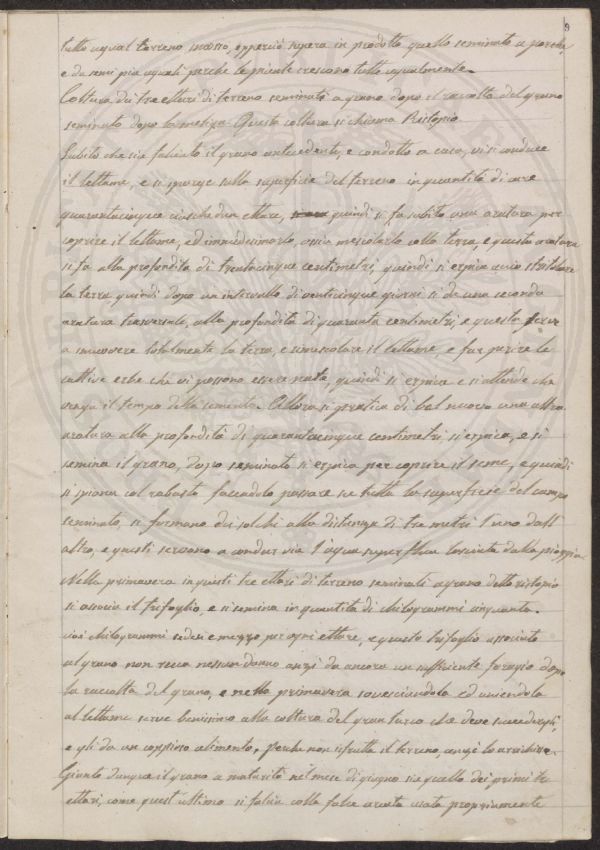 9
tutto ugual terreno smosso, epperciò supera in prodotto quello seminato a porche,
e da semi più uguali perchè le piante crescono tutte ugualmente.
Coltura dei tre ettari di terreno seminati a grano dopo il raccolto del grano
seminato dopo la meliga. Questa coltura si chiama Ristopio.
Subito che sia falciato il grano antecedente, e condotto a casa, vi si conduce
il lettame, e si sparge sulla superficie del terreno in quantità di are
quarantacinque cariche d'un ettare, quindi si fa subito una aratura per
coprire il lettame, ed immedesimarlo, ossia mescolarlo colla terra, e questa aratura
si fa alla profondità di trentacinque centimetri, quindi si erpica onde stritolare
la terra quindi dopo un intervallo di venticinque giorni si dà una seconda
aratura trasversale, alla profondità di quaranta centimetri, e questa serve
a smuovere totalmente la terra, e rimescolare il lettame, e far perire le
cattive erbe che vi possono essere nate, quindi si erpica e si attende che
venga il tempo della sementa. Allora si pratica di bel nuovo una altra
aratura alla profondità di quarantacinque centimetri, si erpica, e si
semina il grano, dopo seminato si erpica per coprire il seme, e quindi
si spiana col rabasto facendolo passare su tutta la superficie del campo
seminato, si formano dei solchi alla distanza di tre metri l'uno dall'
altro, e questi servono a condur via l'acqua superflua lasciata dalla pioggia.
Nella primavera in questi tre ettari di terreno seminati a grano detto ristopio
si associa il trifoglio, e si semina in quantità di chilogrammi cinquanta.
cioè chilogrammi sedici e mezzo per ogni ettare, e questo trifoglio associato
al grano non reca nessun danno anzi dà ancora un sufficiente foragio dopo
la raccolta del grano, e nella primavera sovesciandolo ed unendolo
al lettame serve benissimo alla coltura del gran turco che deve succedergli,
e gli dà un copioso alimento, perchè non sfrutta il terreno, anzi lo arrichisce.
Giunto dunque il grano a maturità nel mese di giugno sia quello dei primi tre
ettari, come quest'ultimo si falcia colla falce usata propriamente